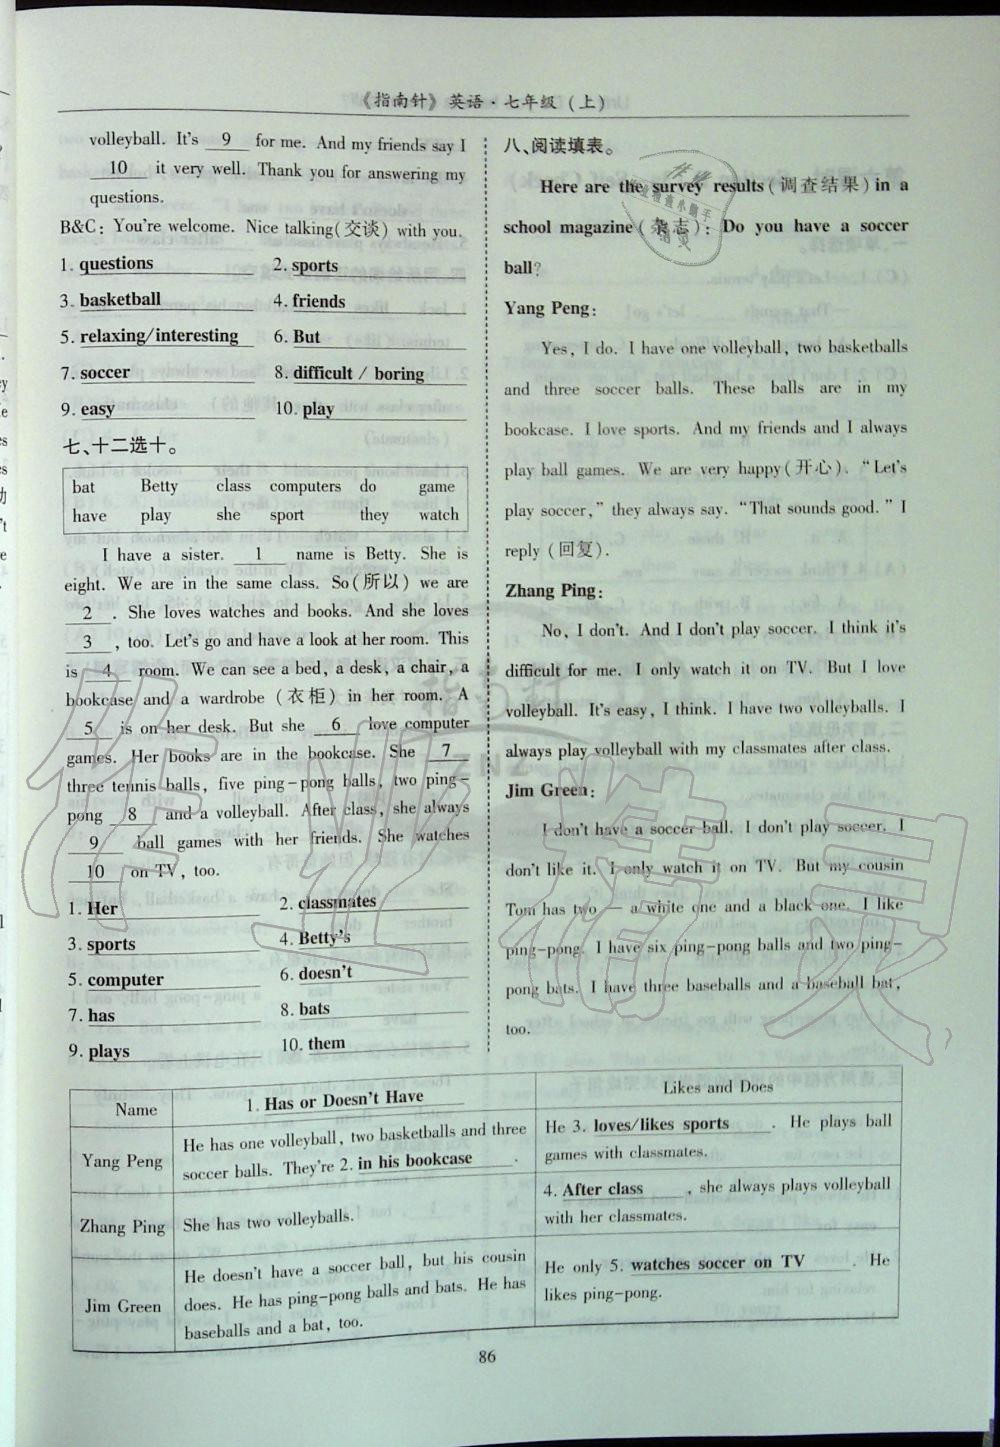 《指南针》英语·七年级(上)
volleyball. It's 9 for me. And my friends say I
10 it very well. Thank you for answering my
questions.
B&C: You're welcome. Nice talking(交谈) with you.
1. questions 2. sports
3. basketball 4. friends
5. relaxing/interesting 6. But
7. soccer 8. difficult / boring
9. easy 10. play
七、十二选十。
bat Betty class computers do game
have play she sport they watch
I have a sister. 1 name is Betty. She is
eight. We are in the same class. So(所以) we are
2 . She loves watches and books. And she loves
3 , too. Let's go and have a look at her room. This
is 4 room. We can see a bed, a desk, a chair, a
bookcase and a wardrobe (衣柜) in her room. A
5 is on her desk. But she 6 love computer
games. Her books are in the bookcase. She 7
three tennis balls, five ping-pong balls, two ping-
pong 8 and a volleyball. After class, she always
9 ball games with her friends. She watches
10 on TV, too.
1. Her 2. classmates
3. sports 4. Betty's
5. computer 6. doesn't
7. has 8. bats
9. plays 10. them
八、阅读填表。
Here are the survey results(调查结果)in a
school magazine(杂志): Do you have a soccer
ball?
Yang Peng:
Yes, I do. I have one volleyball, two basketballs
and three soccer balls. These balls are in my
bookcase. I love sports. And my friends and I always
play ball games. We are very happy(开心). "Let's
play soccer," they always say. "That sounds good." I
reply (回复).
Zhang Ping:
No, I don't. And I don't play soccer. I think it's
difficult for me. I only watch it on TV. But I love
volleyball. It's easy, I think. I have two volleyballs. I
always play volleyball with my classmates after class.
Jim Green:
I don't have a soccer ball. I don't play soccer. I
don't like it. I only watch it on TV. But my cousin
Tom has two — a white one and a black one. I like
ping-pong. I have six ping-pong balls and two ping-
pong bats. I have three baseballs and a baseball bat,
too.
Name 1. Has or Doesn't Have Likes and Does
Yang Peng He has one volleyball, two basketballs and three
soccer balls. They're 2. in his bookcase .
He 3. loves/likes sports . He plays ball
games with classmates.
Zhang Ping She has two volleyballs.
4. After class , she always plays volleyball
with her classmates.
Jim Green He doesn't have a soccer ball, but his cousin
does. He has ping-pong balls and bats. He has
baseballs and a bat, too.
He only 5. watches soccer on TV . He
likes ping-pong.
86